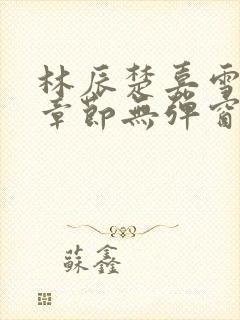 林辰楚嘉雪
章節無彈窗
蘇鑫